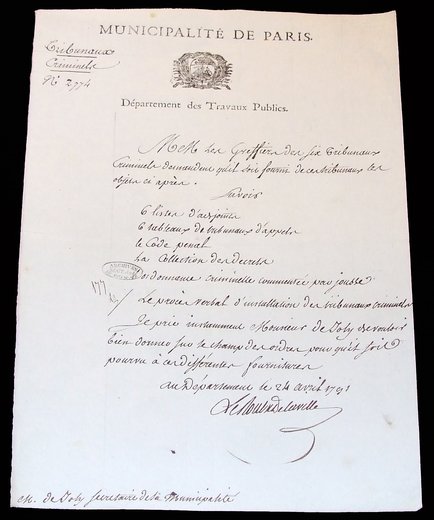 MUNICIPALITÉ DE PARIS.
Tribunaux
Criminels
N° 2774
Département des Travaux Publics.
M.M. Les Greffiers des six Tribunaux
Criminels demandent qu'il soit fourni de ces tribunaux les
objets ci après.
Savoir
6 listes d'adjoints
6 tableaux de tribunaux d'appels
le Code penal
La Collection des decrets
ordonnance criminelle commentée par jousse
Le procès verbal d'installation des tribunaux criminels
Je prie instamment Monsieur de Joly de vouloir
bien donner sur le champ des ordres pour qu'il soit
pourvu à ces différentes fournitures
au Département le 24 avril 1791
M. de Joly secretaire de la Municipalité